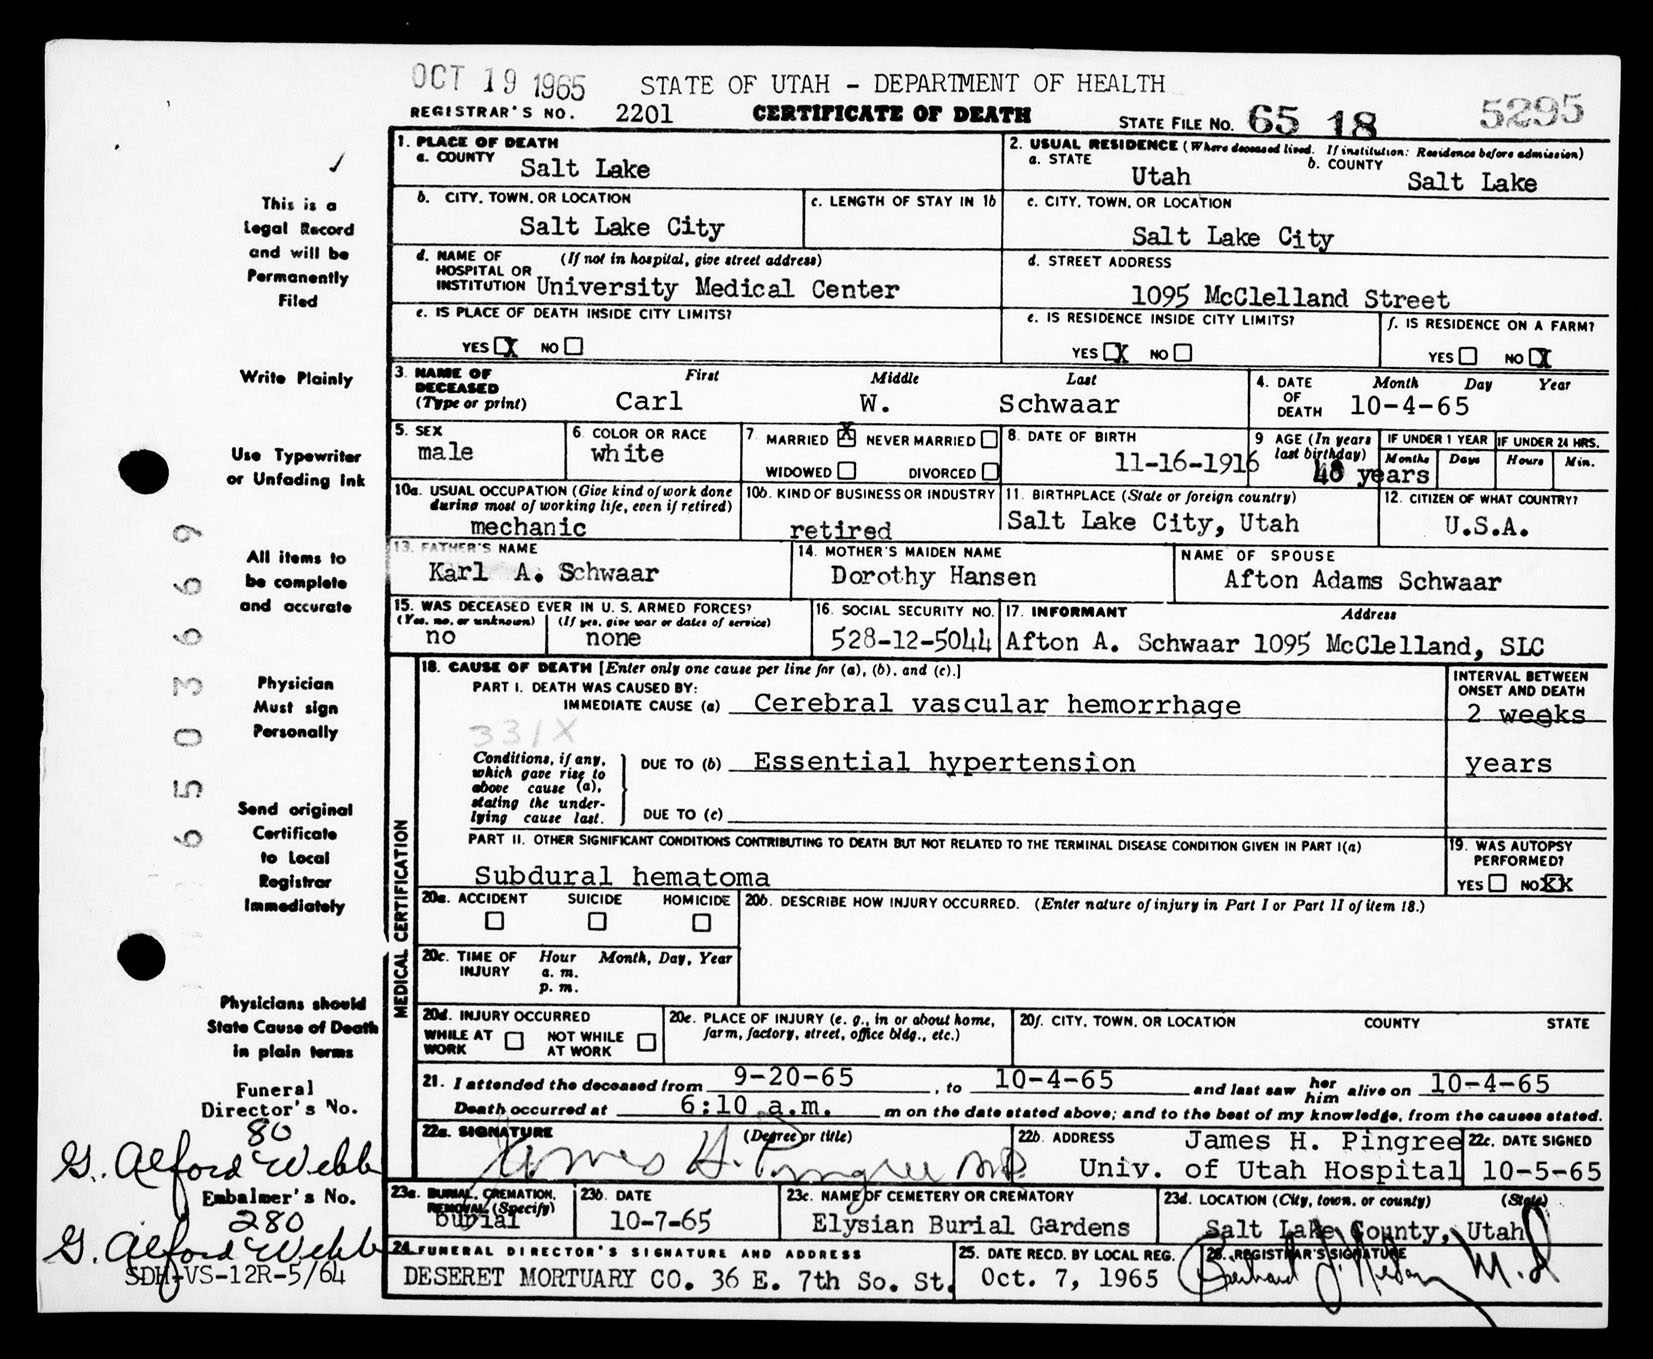 OCT 19 1965 STATE OF UTAH - DEPARTMENT OF HEALTH
REGISTRAR'S NO. 2201 CERTIFICATE OF DEATH STATE FILE NO. 65 18 5295
1. PLACE OF DEATH
a. COUNTY Salt Lake
2. USUAL RESIDENCE (Where deceased lived. If institution: Residence before admission)
a. STATE Utah b. COUNTY Salt Lake
b. CITY, TOWN, OR LOCATION Salt Lake City
c. LENGTH OF STAY IN 1b
c. CITY, TOWN, OR LOCATION
Salt Lake City
d. NAME OF HOSPITAL OR INSTITUTION (If not in hospital, give street address)
University Medical Center
d. STREET ADDRESS
1095 McClelland Street
e. IS PLACE OF DEATH INSIDE CITY LIMITS?
YES X NO
e. IS RESIDENCE INSIDE CITY LIMITS?
YES X NO
f. IS RESIDENCE ON A FARM?
YES NO X
3. NAME OF DECEASED (Type or print) First Middle Last
Carl W. Schwaar
4. DATE OF DEATH Month Day Year
10-4-65
5. SEX
male
6. COLOR OR RACE
white
7. MARRIED X NEVER MARRIED
WIDOWED DIVORCED
8. DATE OF BIRTH
11-16-1916
9 AGE (In years last birthday)
48 years
IF UNDER 1 YEAR
Months Days
IF UNDER 24 HRS.
Hours Min.
10a. USUAL OCCUPATION (Give kind of work done during most of working life, even if retired)
mechanic
10b. KIND OF BUSINESS OR INDUSTRY
retired
11. BIRTHPLACE (State or foreign country)
Salt Lake City, Utah
12. CITIZEN OF WHAT COUNTRY?
U.S.A.
13. FATHER'S NAME
Karl A. Schwaar
14. MOTHER'S MAIDEN NAME
Dorothy Hansen
NAME OF SPOUSE
Afton Adams Schwaar
15. WAS DECEASED EVER IN U. S. ARMED FORCES?
(Yes, no, or unknown) (If yes, give war or dates of service)
no none
16. SOCIAL SECURITY NO.
528-12-5044
17. INFORMANT Address
Afton A. Schwaar 1095 McClelland, SLC
MEDICAL CERTIFICATION
18. CAUSE OF DEATH [Enter only one cause per line for (a), (b), and (c).]
INTERVAL BETWEEN ONSET AND DEATH
PART I. DEATH WAS CAUSED BY:
IMMEDIATE CAUSE (a) Cerebral vascular hemorrhage 2 weeks
331X
Conditions, if any, which gave rise to above cause (a), stating the underlying cause last.
DUE TO (b) Essential hypertension years
DUE TO (c)
PART II. OTHER SIGNIFICANT CONDITIONS CONTRIBUTING TO DEATH BUT NOT RELATED TO THE TERMINAL DISEASE CONDITION GIVEN IN PART I(a)
Subdural hematoma
19. WAS AUTOPSY PERFORMED?
YES NO XX
20a. ACCIDENT SUICIDE HOMICIDE
20b. DESCRIBE HOW INJURY OCCURRED. (Enter nature of injury in Part I or Part II of item 18.)
20c. TIME OF INJURY Hour Month, Day, Year
a. m.
p. m.
20d. INJURY OCCURRED
WHILE AT WORK NOT WHILE AT WORK
20e. PLACE OF INJURY (e. g., in or about home, farm, factory, street, office bldg., etc.)
20f. CITY, TOWN, OR LOCATION COUNTY STATE
21. I attended the deceased from 9-20-65, to 10-4-65 and last saw her him alive on 10-4-65
Death occurred at 6:10 a.m. m on the date stated above; and to the best of my knowledge, from the causes stated.
22a. SIGNATURE (Degree or title)
James H. Pingree MD
22b. ADDRESS James H. Pingree
Univ. of Utah Hospital
22c. DATE SIGNED
10-5-65
23a. BURIAL, CREMATION, REMOVAL (Specify)
burial
23b. DATE
10-7-65
23c. NAME OF CEMETERY OR CREMATORY
Elysian Burial Gardens
23d. LOCATION (City, town, or county) (State)
Salt Lake County, Utah
24. FUNERAL DIRECTOR'S SIGNATURE AND ADDRESS
DESERET MORTUARY CO. 36 E. 7th So. St.
25. DATE RECD. BY LOCAL REG.
Oct. 7, 1965
26. REGISTRAR'S SIGNATURE
M.D
This is a
Legal Record
and will be
Permanently
Filed
Write Plainly
Use Typewriter
or Unfading Ink
All items to
be complete
and accurate
Physician
Must sign
Personally
Send original
Certificate
to Local
Registrar
Immediately
Physicians should
State Cause of Death
in plain terms
Funeral
Director's No.
80
G. Alford Webb
Embalmer's No.
280
G. Alford Webb
SDH-VS-12R-5/64
65036669